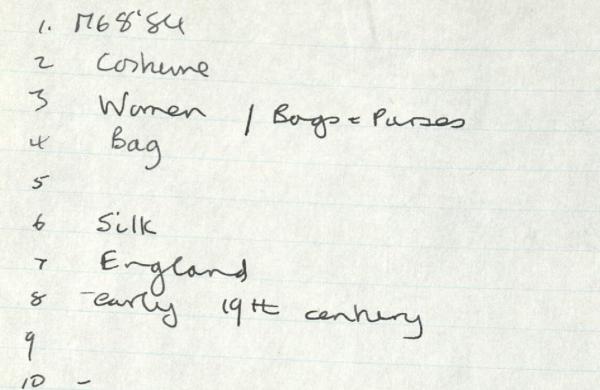 1. M68'84
2 Costume
3 Women / Bags = Purses
4 Bag
5
6 Silk
7 England
8 -early 19th century
9
10 -